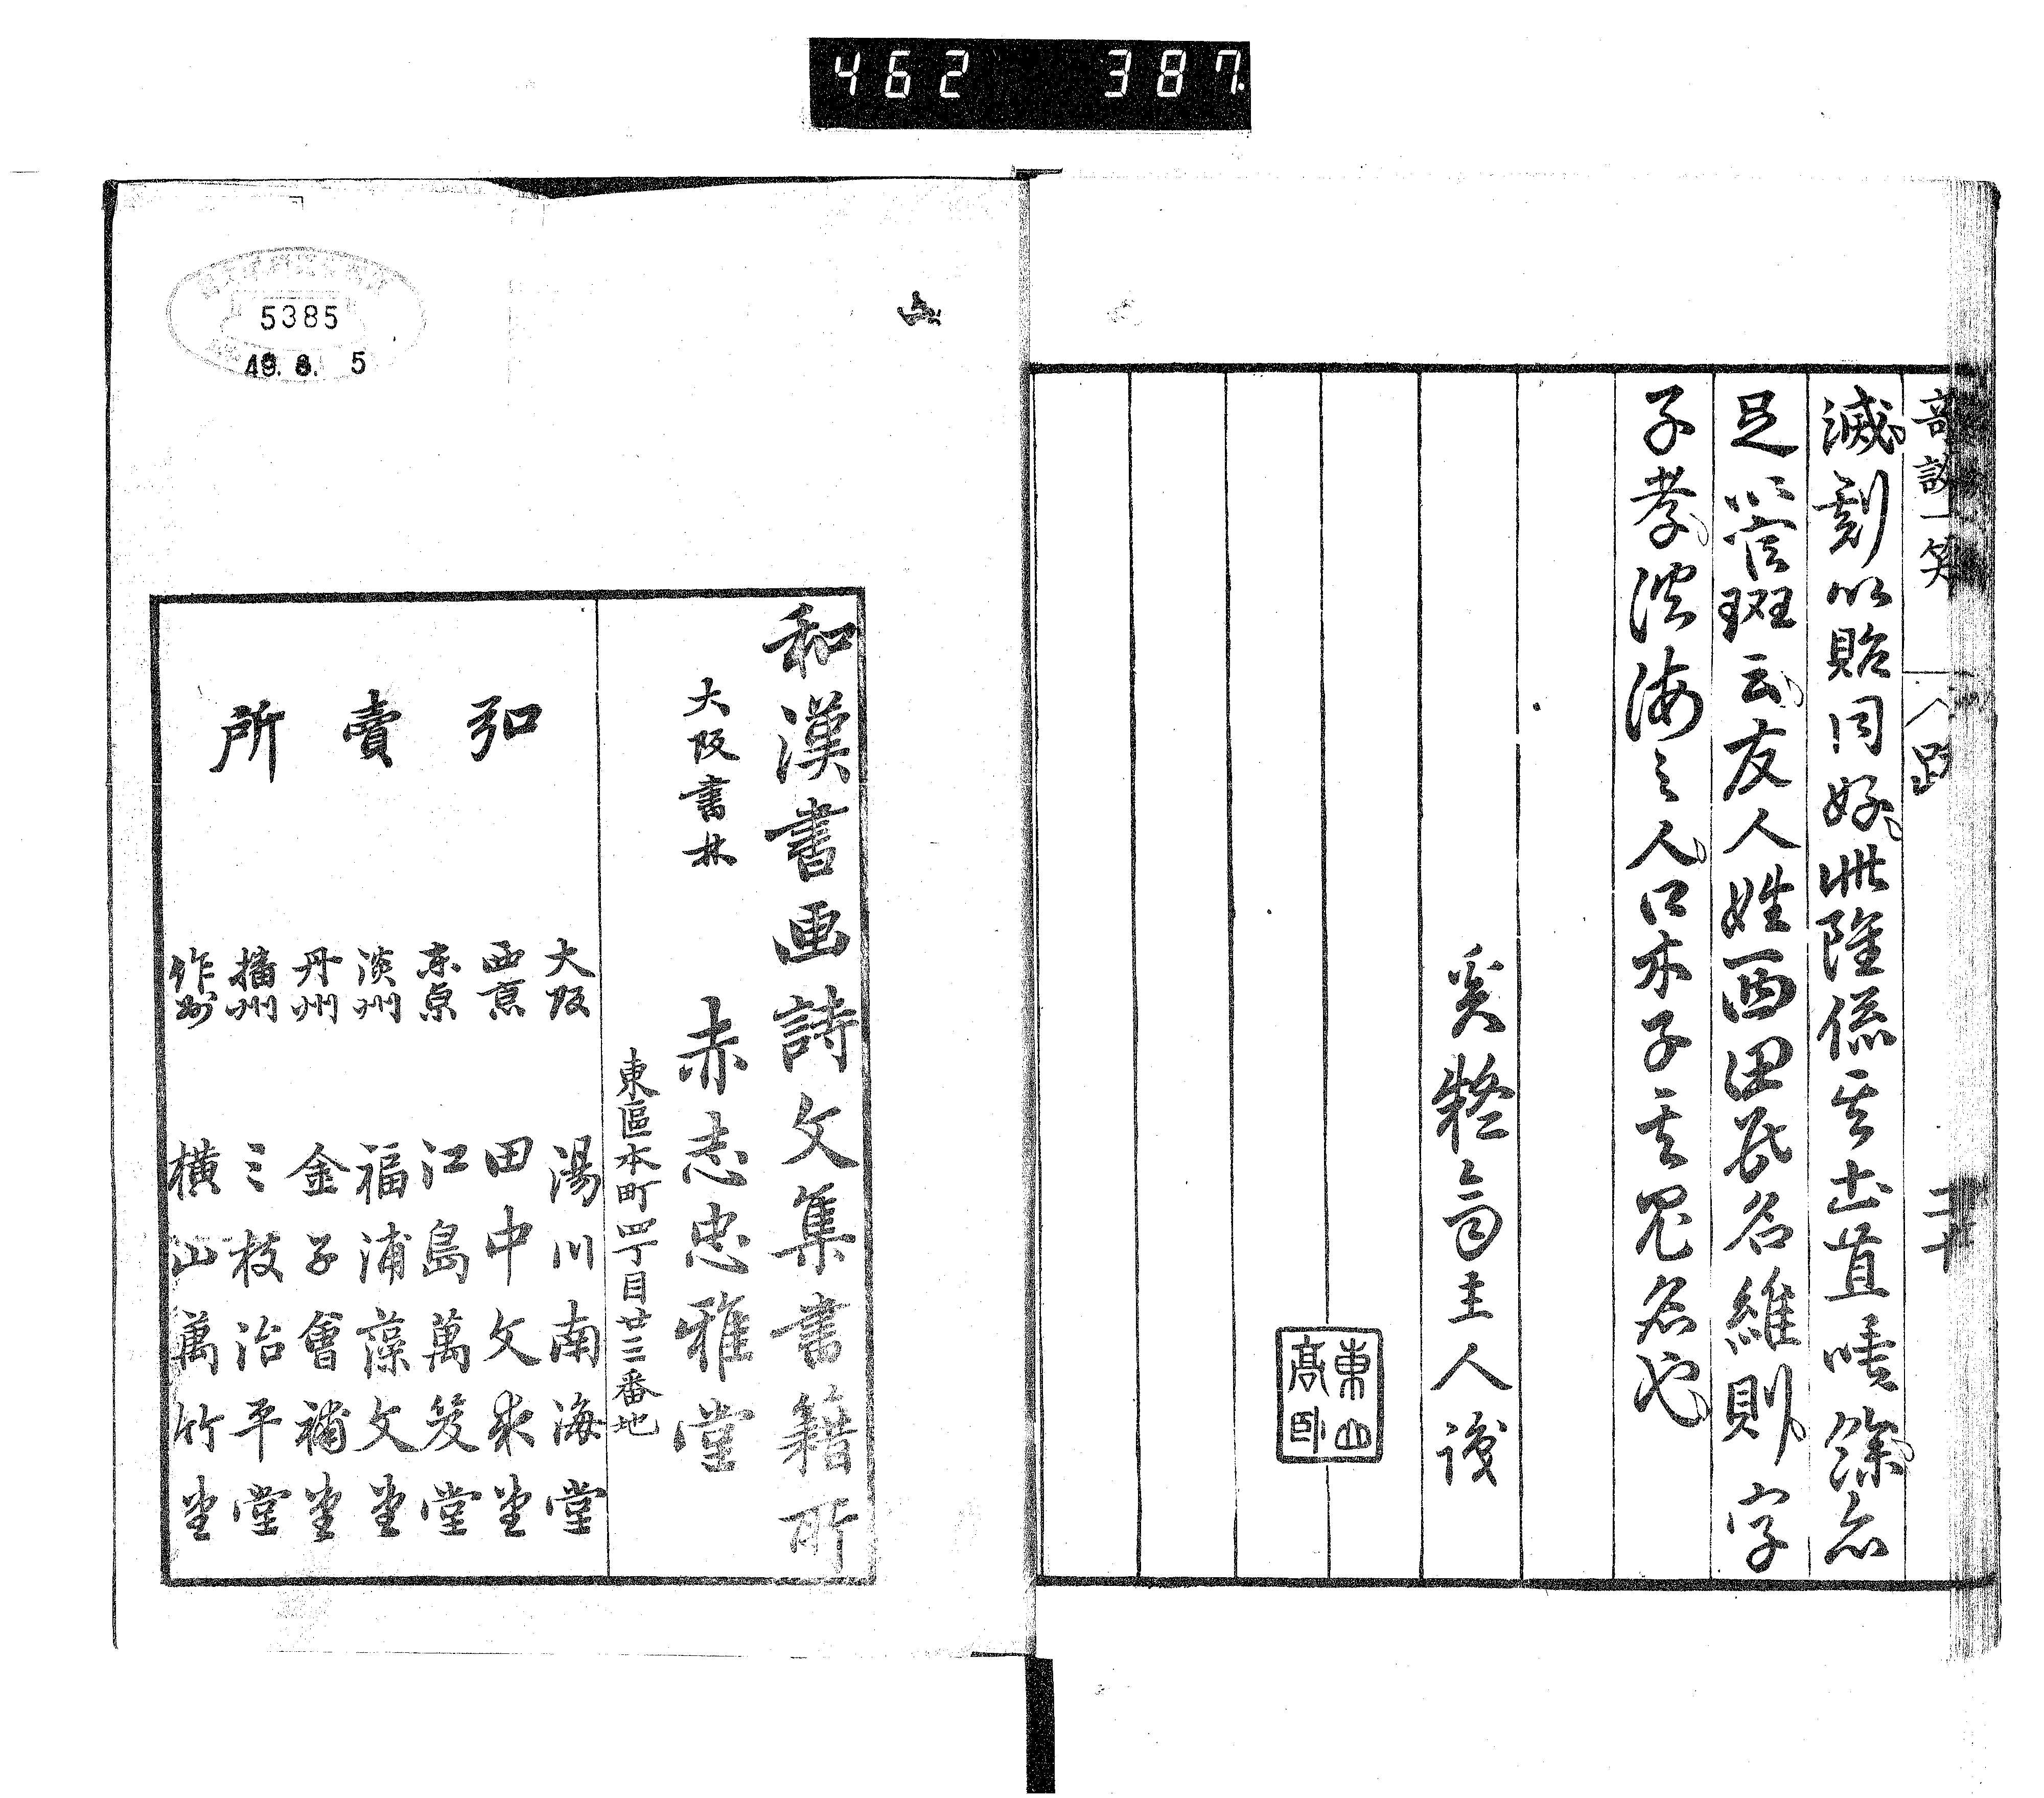 462 387
奇談一笑
跋
滅、刻以貽同好、此雖係其土苴唾餘、亦
足以管斑云、友人姓西田氏名維則、字
子孝、淡海之人、口木子其罵名也、
奚疑斎主人識
東山高臥
和漢書画詩文集書籍所
大阪書林 赤志忠雅堂
東區本町四丁目廿三番地
弘賣所
大阪 湯川南海堂
西京 田中文求堂
東京 江島萬笈堂
淡州 福浦藻文堂
丹州 金子會補堂
播州 三枝治平堂
作州 横山萬竹堂
5385
49. 8. 5